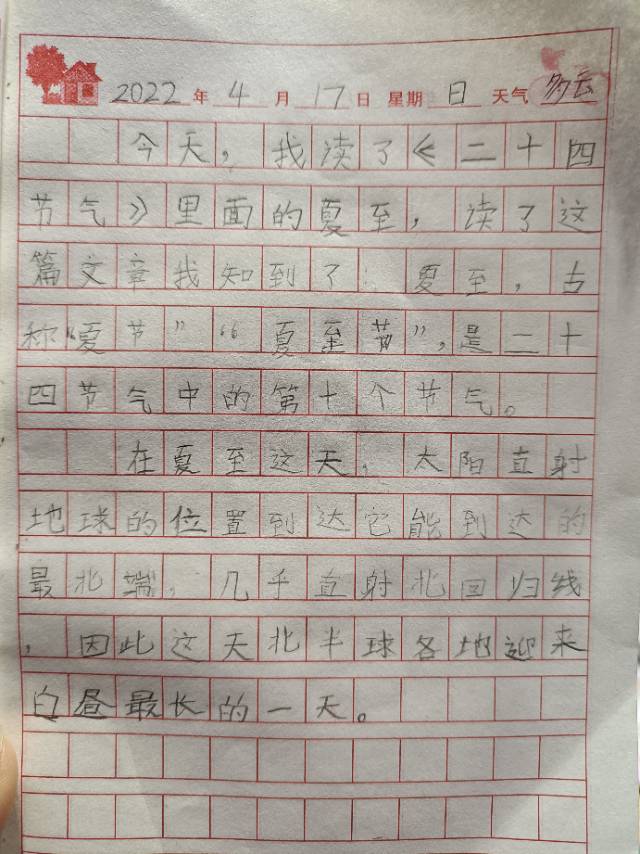 2022年4月17日 星期日 天气多云
今天，我读了《二十四
节气》里面的夏至，读了这
篇文章我知到了：夏至，古
称“夏节”“夏至节”，是二十
四节气中的第十个节气。
在夏至这天，太阳直射
地球的位置到达它能到达的
最北端，几乎直射北回归线
，因此这天北半球各地迎来
白昼最长的一天。